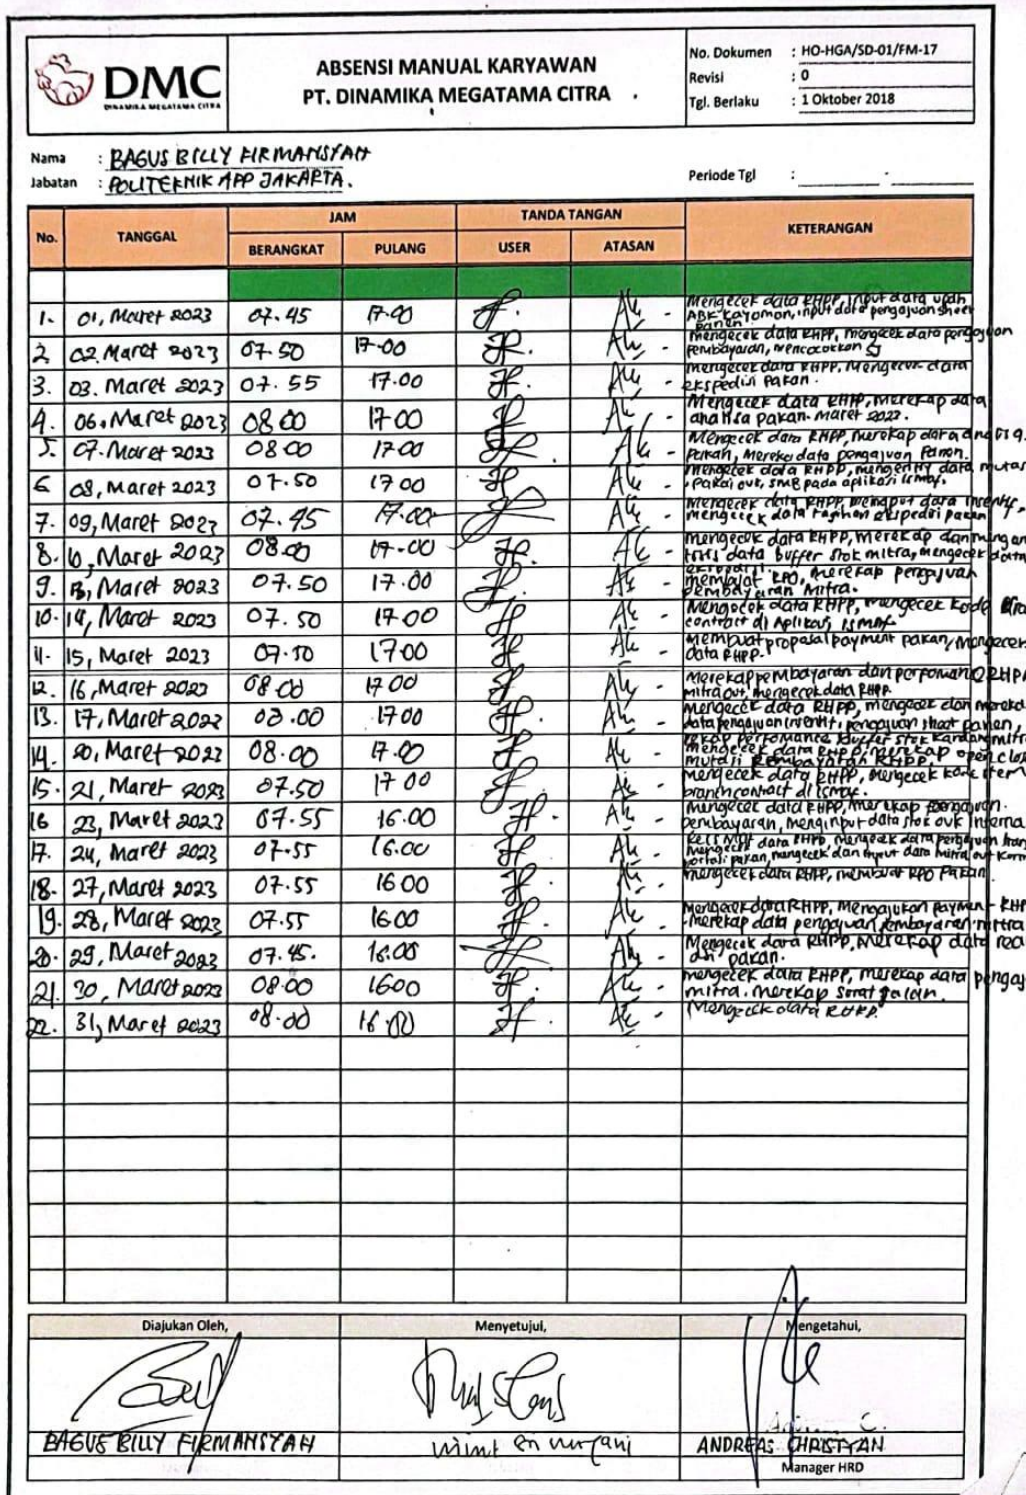 DMC
DINAMIKA MEGATAMA CITRA
ABSENSI MANUAL KARYAWAN
PT. DINAMIKA MEGATAMA CITRA
No. Dokumen : HO-HGA/SD-01/FM-17
Revisi : 0
Tgl. Berlaku : 1 Oktober 2018
Nama : BAGUS BILLY FIRMANSYAH
Jabatan : POLITEKNIK APP JAKARTA.
Periode Tgl : -
No. TANGGAL JAM TANDA TANGAN KETERANGAN
BERANGKAT PULANG USER ATASAN
1. 01, Maret 2023 07.45 17.00 Mengecek data RHPP, input data
ABK Kayomon, input data pengajuan sheet
panen.
2. 02 Maret 2023 07.50 17-00 mengecek data RHPP, mengecek data pengajuan
Pembayaran, mencocokkan SJ
3. 03. Maret 2023 07.55 17.00 mengecek data RHPP, Mengecek data
ekspedisi pakan.
4. 06, Maret 2023 08 00 17 00 Mengecek data RHPP, merekap data
analisa pakan. maret 2022.
5. 07. Maret 2023 08 00 17 00 Mengecek data RHPP, merekap data
Pakan, Mereka data pengajuan Panen.
6 08, Maret 2023 07.50 17 00 mengecek data RHPP, mengentry data mutas
Pakai out, SMB pada aplikasi ismaf.
7. 09, Maret 2023 07.45 17.00 Mengecek data RHPP, menginput data insentif,
mengecek data tagihan ekspedisi pakan
8. 10, Maret 2023 08.00 17-00 mengecek data RHPP, merekap dan
data buffer stok mitra, mengecek data
ekspedisi.
9. 13, Maret 2023 07.50 17.00 membuat RPO, merekap pengajuan
pembayaran Mitra.
10. 14, Maret 2023 07.50 17.00 Mengecek data RHPP, mengecek kode
contract di Aplikasi ismaf
11. 15, Maret 2023 07.50 17 00 Membuat proposal payment pakan, mengecek
data RHPP.
12. 16, Maret 2023 08 00 17 00 Merekap pembayaran dan performance RHPP
mitra out, mengecek data RHPP.
13. 17, Maret 2023 08.00 17 00 Mengecek data RHPP, mengecek dan mereka
data pengajuan insentif, pengajuan sheet panen,
rekap performance buffer stok kandang mitra
14. 20, Maret 2023 08.00 17.00 mengecek data RHPP, merekap open clos
mutasi Pembayaran RHPP.
15. 21, Maret 2023 07.50 17 00 mengecek data RHPP, mengecek kode item
branch contract di ismaf.
16 23, Maret 2023 07.55 16.00 Mengecek data RHPP, merekap pengajuan.
pembayaran, menginput data stok ovk interna
17. 24, Maret 2023 07.55 16.00 Mengecek data RHPP, mengecek data pengajuan
pakan, mengecek dan input data mitra out
18. 27, Maret 2023 07.55 16 00 mengecek data RHPP, membuat RPO Pakan.
19. 28, Maret 2023 07.55 16 00 Mengecek data RHPP, Mengajukan Payment RHP
merekap data pengajuan pembayaran mitra
20. 29, Maret 2023 07.45. 16.00 Mengecek data RHPP, Merekap data
pakan.
21. 30, Maret 2023 08.00 16 00 mengecek data RHPP, merekap data pengaj
mitra. Merekap surat jalan.
22. 31, Maret 2023 08.00 16.00 Mengecek data RHPP.
Diajukan Oleh, Menyetujui, Mengetahui,
BAGUS BILLY FIRMANSYAH ANDREAS CHRISTYAN
Manager HRD